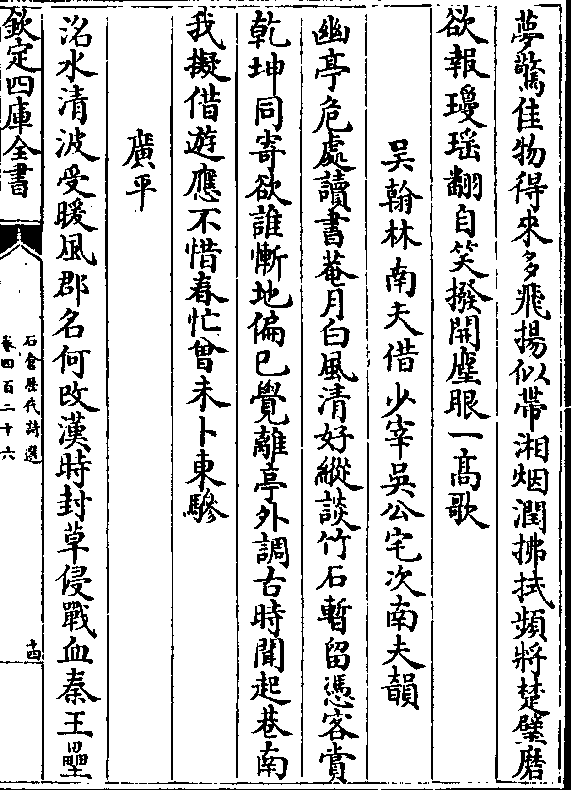 夢驚佳物得來多飛揚似帶湘烟潤拂拭頻將楚璧磨
欲報瓊瑶翻自笑撥開塵眼一髙歌
吴翰林南夫借少宰吳公宅次南夫韻
幽亭危處讀書菴月白風清好縱談竹石暫留憑客賞
乾坤同寄欲誰慚地偏已覺離亭外調古時聞起巷南
我擬借遊應不惜春忙曾未卜東驂
廣平
洺水清波受暖風郡名何改漢時封草侵戰血秦王壘
欽定四庫全書
石倉歴代詩選
卷四百二十六
十四